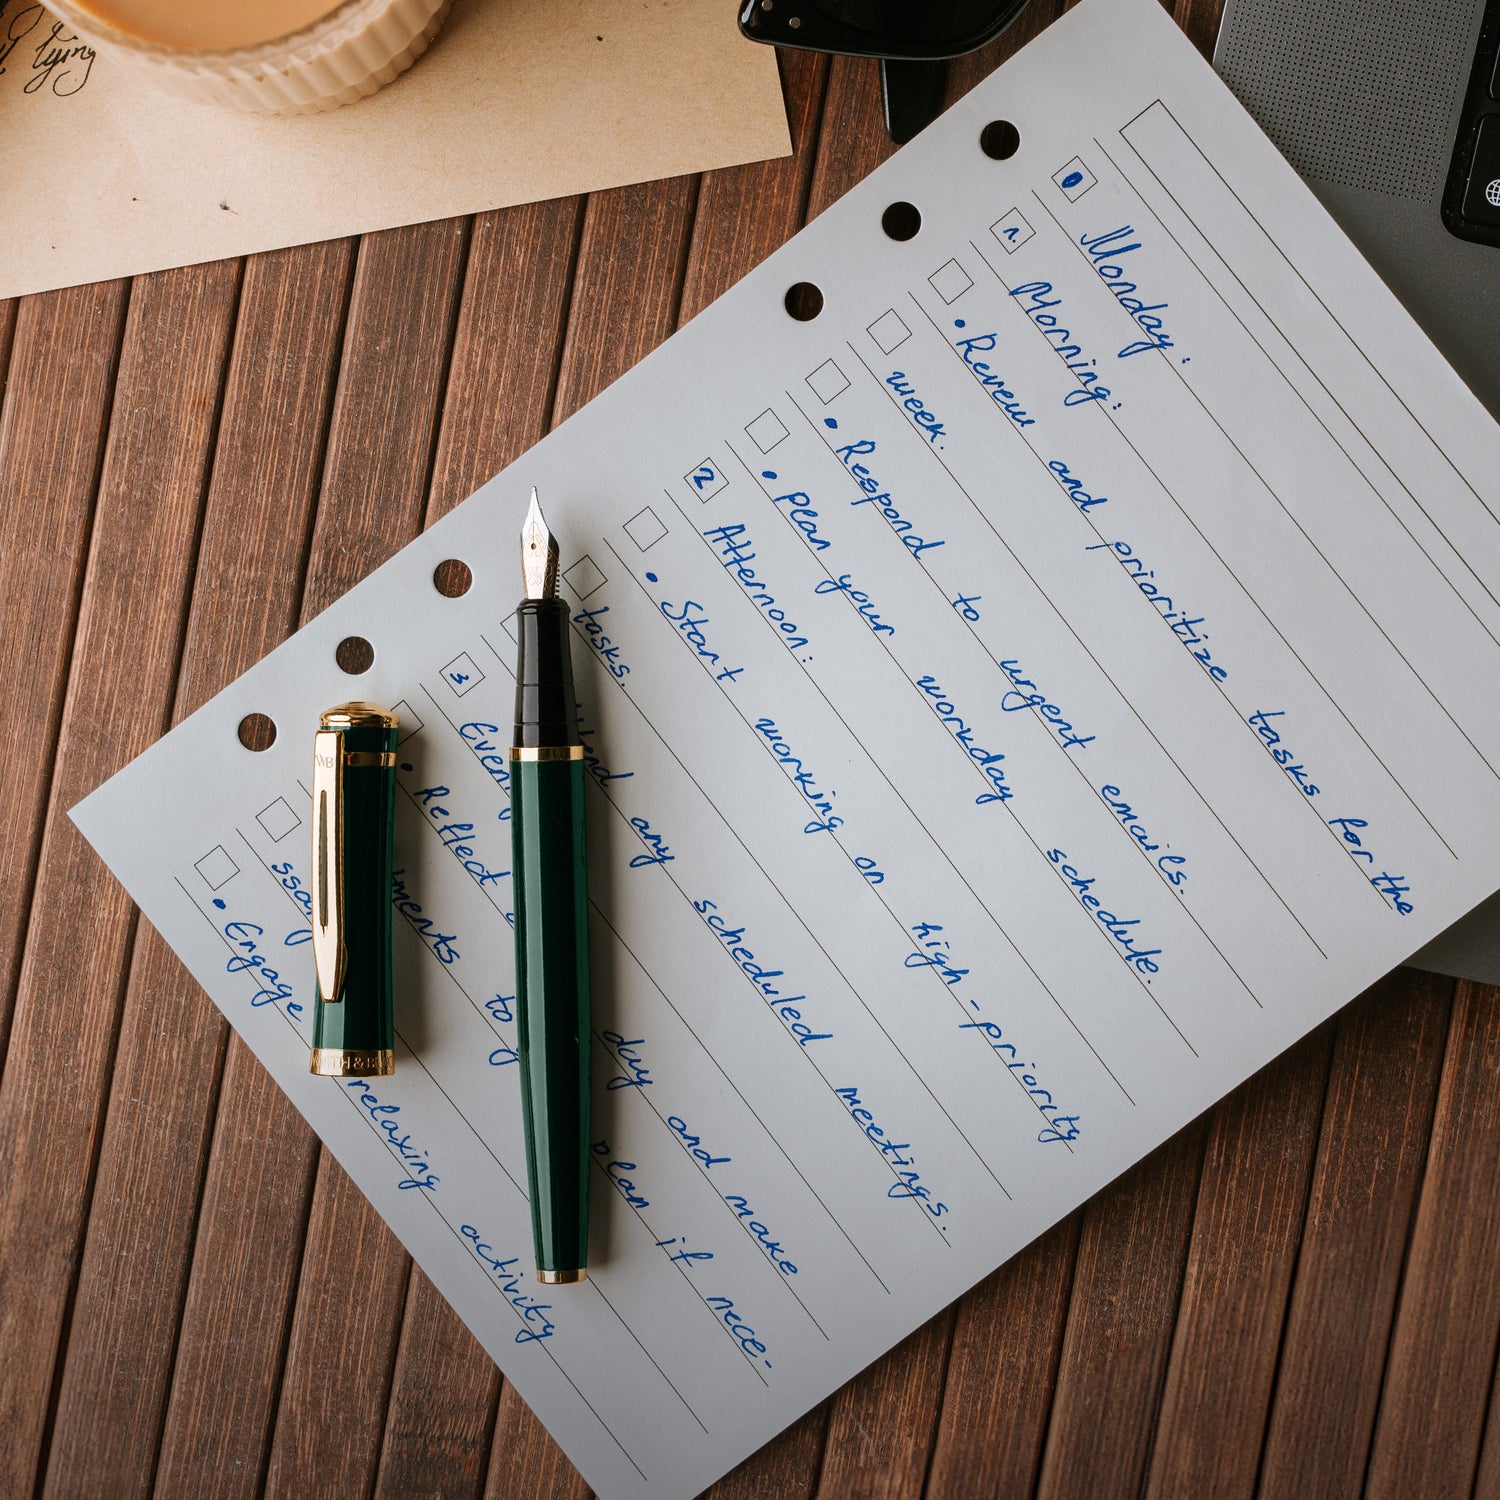 lying
0 Monday:
1. Morning:
• Review and prioritize tasks for the
week.
• Respond to urgent emails.
• plan your workday schedule.
2 Afternoon:
• Start working on high-priority
tasks.
any scheduled meetings.
3
• Reflect day and make
to plan if nece-
• Engage relaxing activity
WB